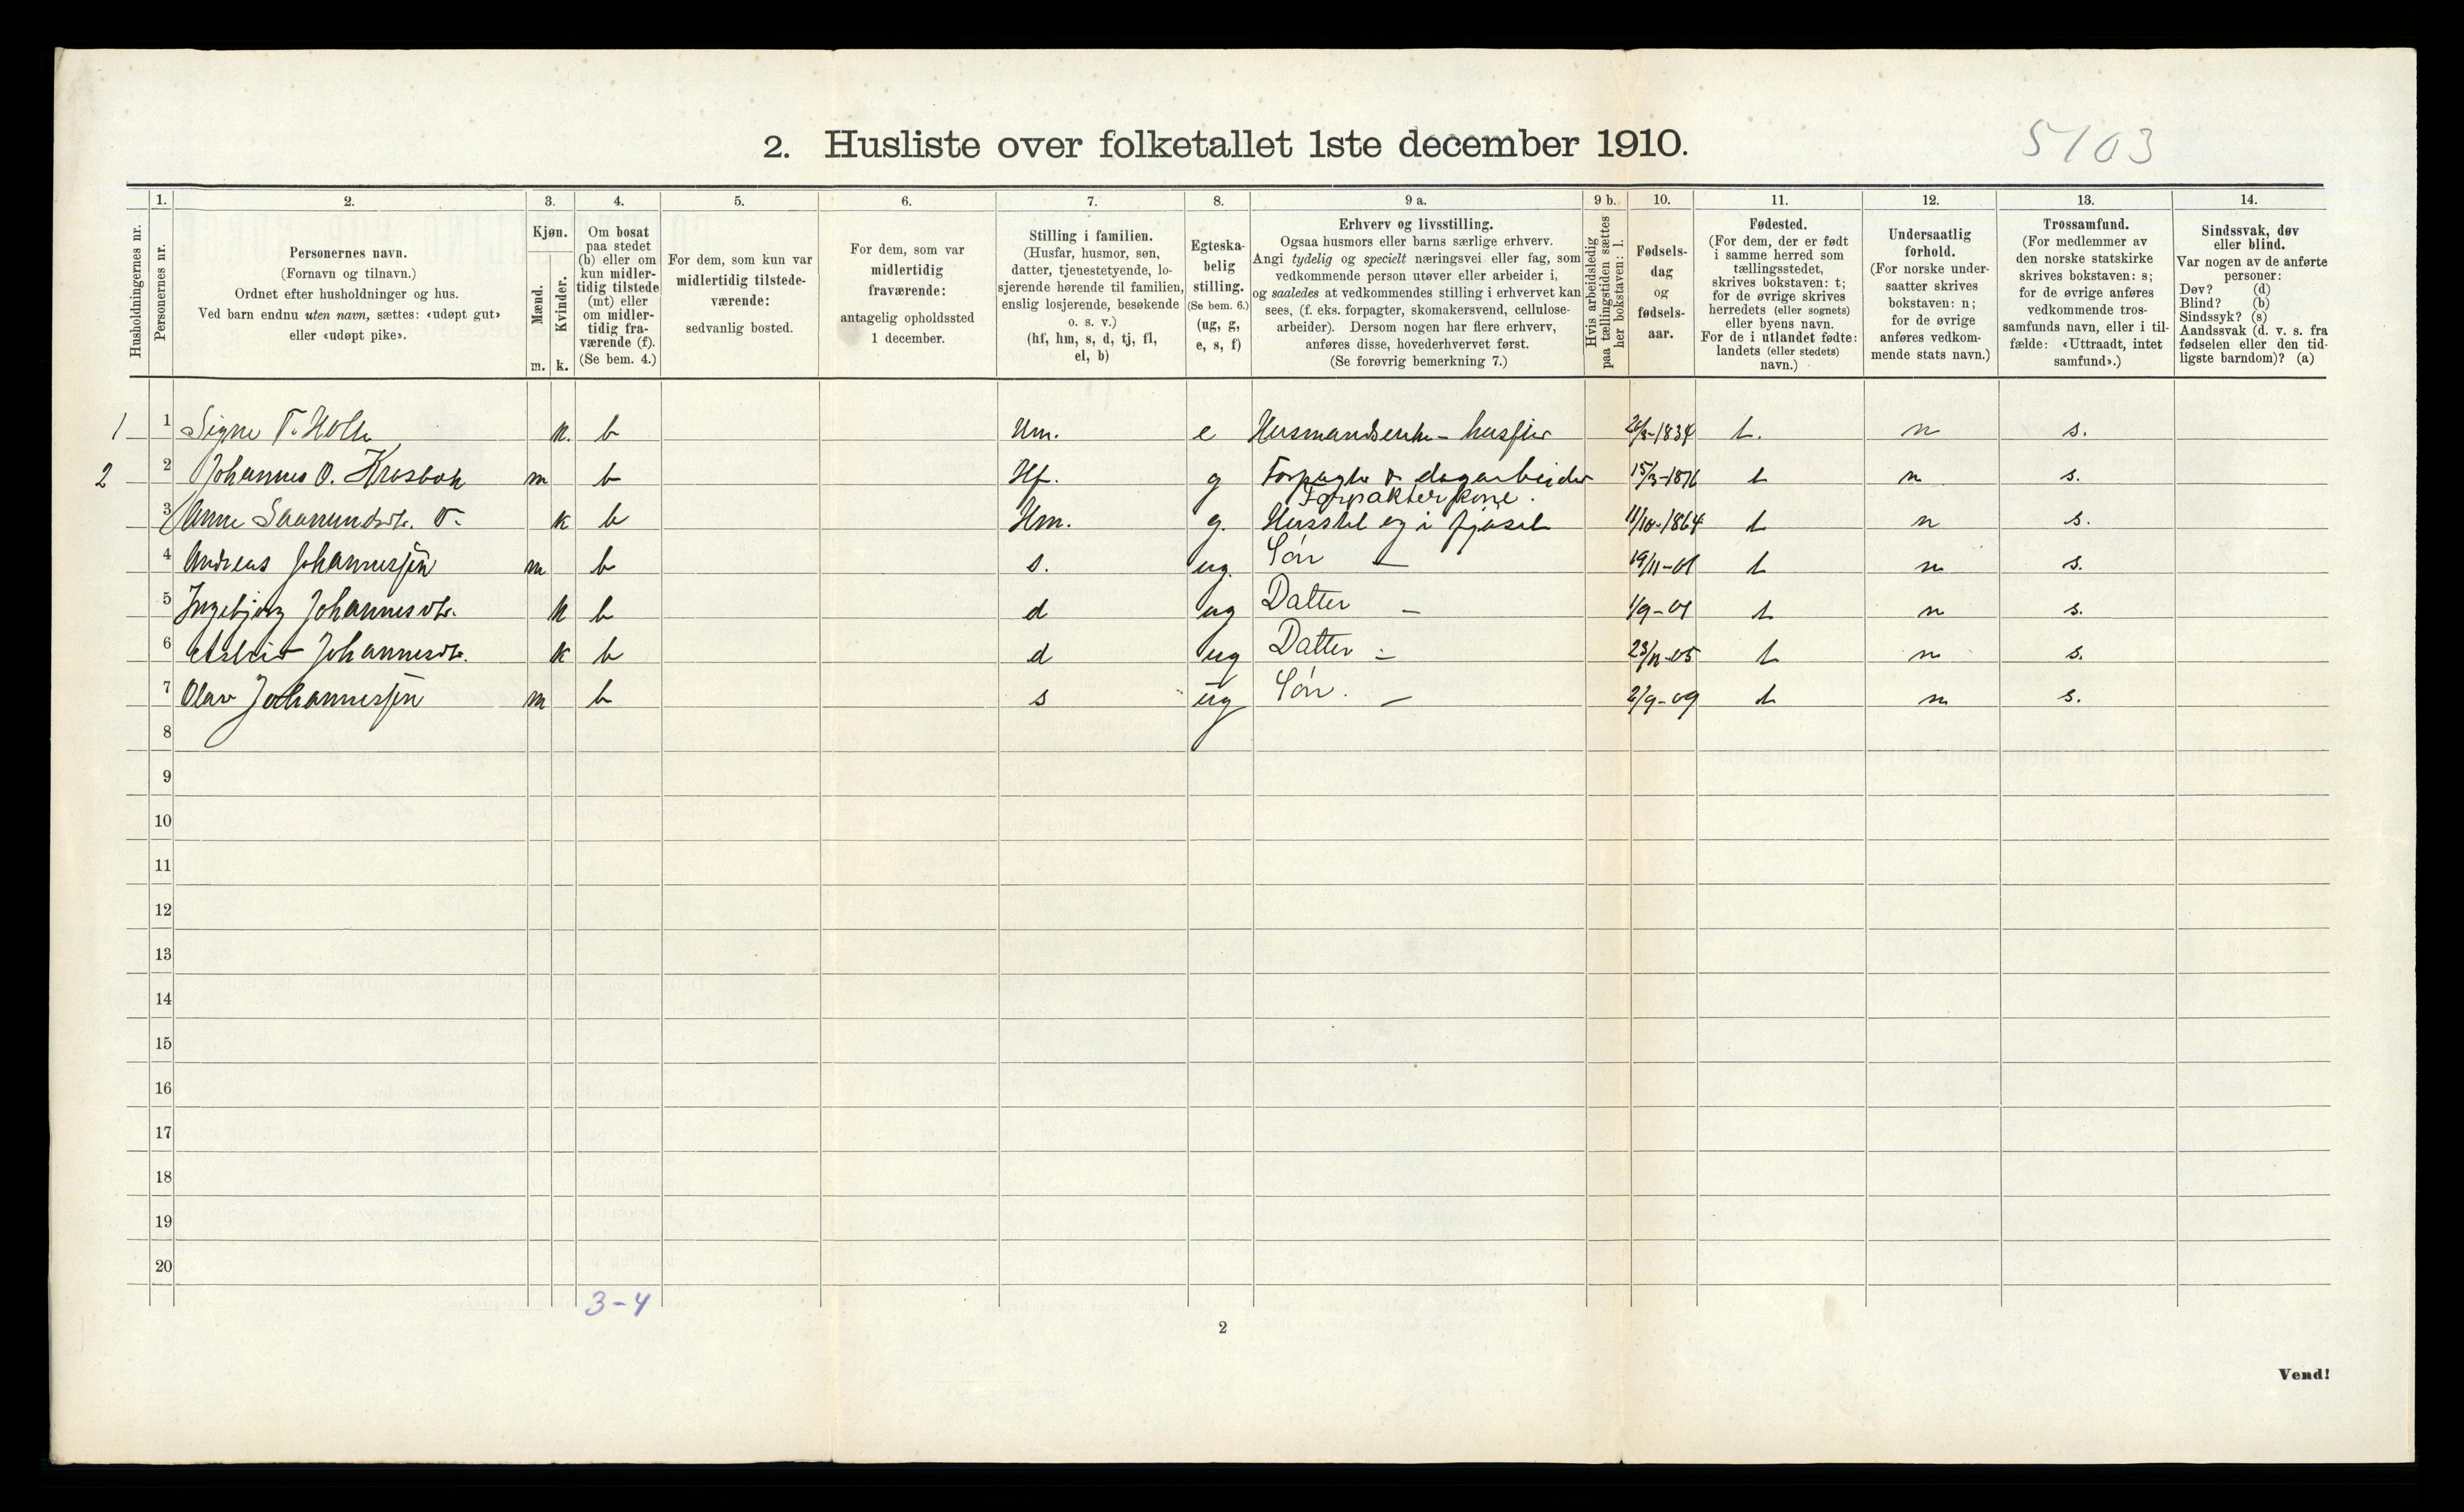 2. Husliste over folketallet 1ste december 1910.
5103
Husholdningernes nr.
1.
Personernes nr.
2.
Personernes navn.
(Fornavn og tilnavn.)
Ordnet efter husholdninger og hus.
Ved barn endnu uten navn, sættes: «udøpt gut»
eller «udøpt pike».
3.
Kjøn.
Mænd.
Kvinder.
m. k.
4.
Om bosat
paa stedet
(b) eller om
kun midler-
tidig tilstede
(mt) eller
om midler-
tidig fra-
værende (f).
(Se bem. 4.)
5.
For dem, som kun var
midlertidig tilstede-
værende:
sedvanlig bosted.
6.
For dem, som var
midlertidig
fraværende:
antagelig opholdssted
1 december.
7.
Stilling i familien.
(Husfar, husmor, søn,
datter, tjenestetyende, lo-
sjerende hørende til familien,
enslig losjerende, besøkende
o. s. v.)
(hf, hm, s, d, tj, fl,
el, b)
8.
Egteska-
belig
stilling.
(Se bem. 6.)
(ug, g,
e, s, f)
9 a.
Erhverv og livsstilling.
Ogsaa husmors eller barns særlige erhverv.
Angi tydelig og specielt næringsvei eller fag, som
vedkommende person utøver eller arbeider i,
og saaledes at vedkommendes stilling i erhvervet kan
sees, (f. eks. forpagter, skomakersvend, cellulose-
arbeider). Dersom nogen har flere erhverv,
anføres disse, hovederhvervet først.
(Se forøvrig bemerkning 7.)
9 b.
Hvis arbeidsledig
paa tællingstiden sættes
her bokstaven: l.
10.
Fødsels-
dag
og
fødsels-
aar.
11.
Fødested.
(For dem, der er født
i samme herred som
tællingsstedet,
skrives bokstaven: t;
for de øvrige skrives
herredets (eller sognets)
eller byens navn.
For de i utlandet fødte:
landets (eller stedets)
navn.)
12.
Undersaatlig
forhold.
(For norske under-
saatter skrives
bokstaven: n;
for de øvrige
anføres vedkom-
mende stats navn.)
13.
Trossamfund.
(For medlemmer av
den norske statskirke
skrives bokstaven: s;
for de øvrige anføres
vedkommende tros-
samfunds navn, eller i til-
fælde: «Uttraadt, intet
samfund».)
14.
Sindssvak, døv
eller blind.
Var nogen av de anførte
personer:
Døv? (d)
Blind? (b)
Sindssyk? (s)
Aandssvak (d. v. s. fra
fødselen eller den tid-
ligste barndom)? (a)
1 1 Signe T. k. b Hm. e Husmandsenke - 1834 t. n s.
2 2 Johannes O. Krosbak m b Hf. g Forpagter & dagarbeider 15/3-1876 t n s.
Forpakterkone.
3 Anne k b Hm. g. Husstel og i fjøset 11/10-1864 t n s.
4 Andreas Johannessøn m b s. ug. Søn - 19/11-01 t n s.
5 Ingebjørg Johannesdtr. k b d ug Datter - 1/9-01 t n s.
6 Astrid Johannesdtr. k b d ug Datter - 23/11-05 t n s.
7 Olav Johannessøn m b s ug Søn. - 2/9-09 t n s.
8
9
10
11
12
13
14
15
16
17
18
19
20
3-4
2
Vend!